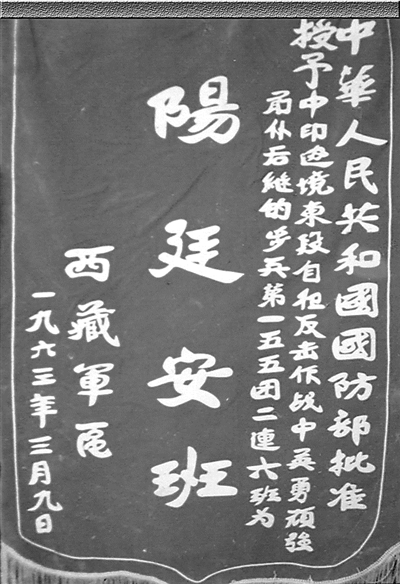 中華人民共和國國防部批准
授予中印边境東段自卫反击作战中英勇頑強
前仆后継的步兵第一五五团二連六班为
陽廷安班
西藏軍区
一九六三年三月九日